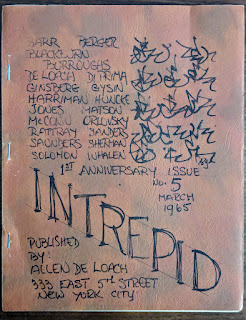 BARR BERGER
BLACKBURN
BURROUGHS
DE LOACH DI PRIMA
GINSBERG GYSIN
HARRIMAN HUNCKE
JONES MATSON
McCORD ORLOVSKY
RATTRAY SANDERS
SAUNDERS SHERMAN
SOLOMON WHALEN
1ST ANNIVERSARY ISSUE
No. 5
MARCH
1965
INTREPID
PUBLISHED
BY:
ALLEN DE LOACH
333 EAST 5TH STREET
NEW YORK CITY